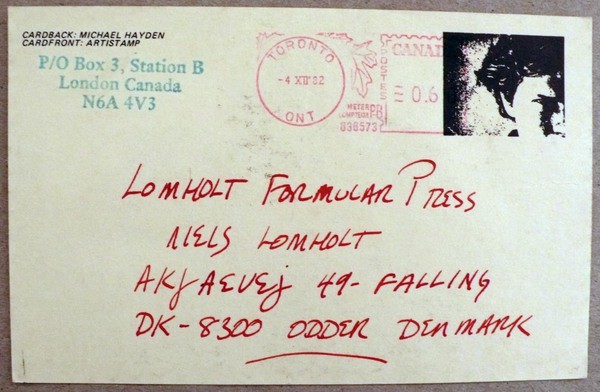 CARDBACK: MICHAEL HAYDEN
CARDFRONT: ARTISTAMP
P/O Box 3, Station B
London Canada
N6A 4V3
TORONTO
-4 XII 82
ONT
POSTES
CANADA
0.6
METER
PB
836573
LOMHOLT FORMULAR PRESS
NIELS LOMHOLT
AKJAEVEJ 49- FALLING
DK-8300 ODDER DENMARK